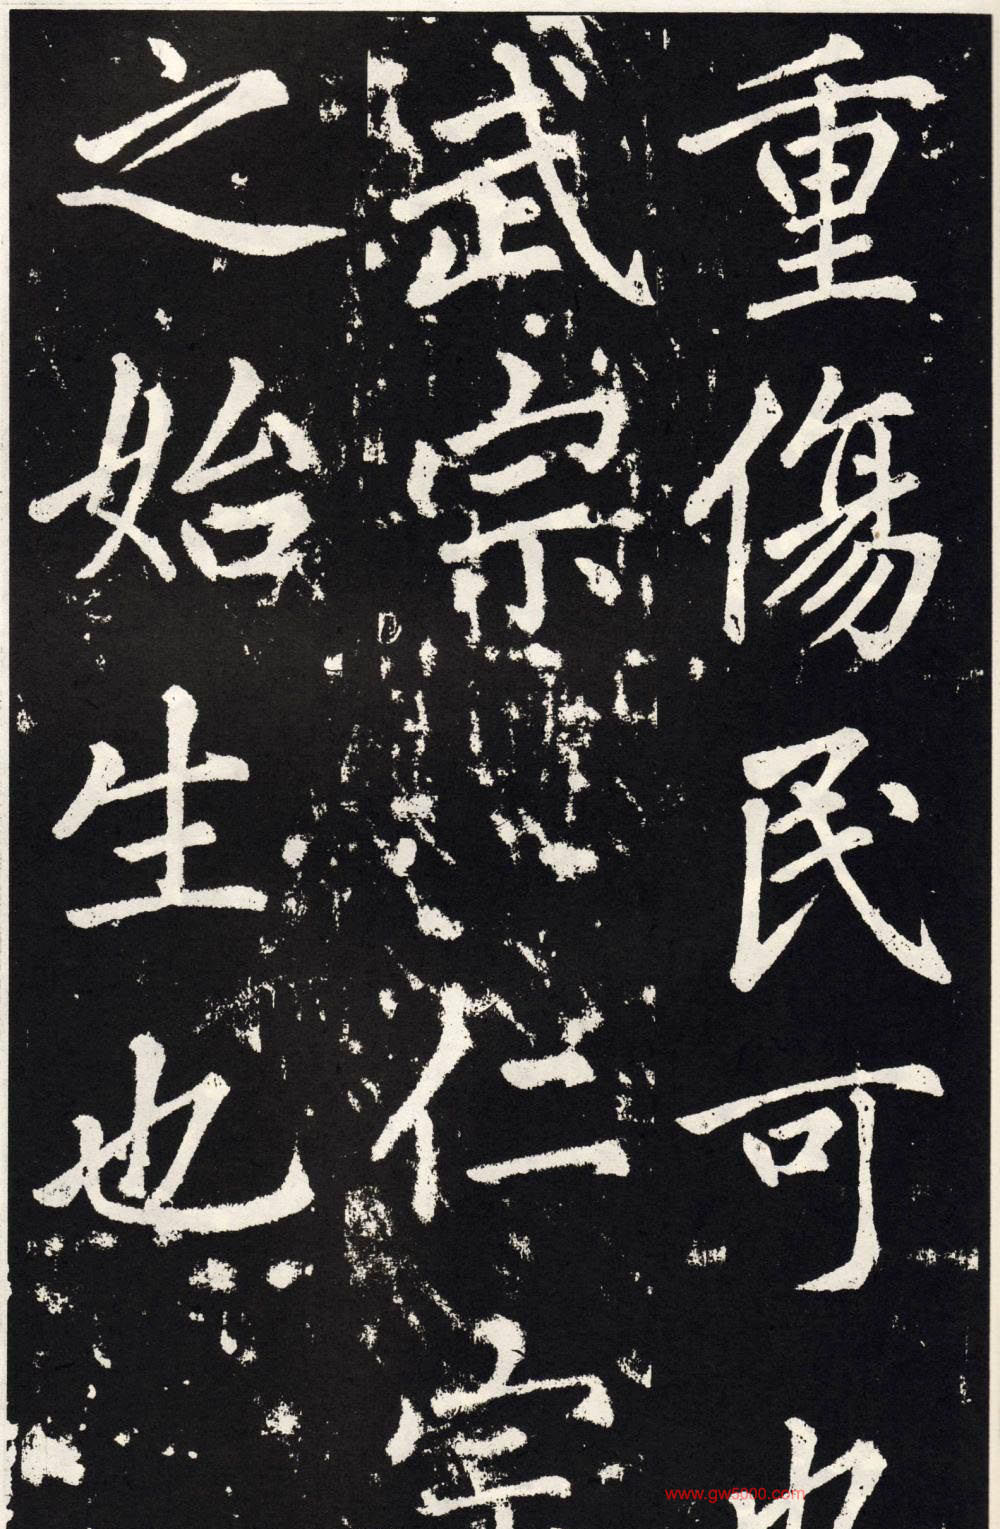 重傷民可也
武宗仁宗
之始生也
www.gw5000.com